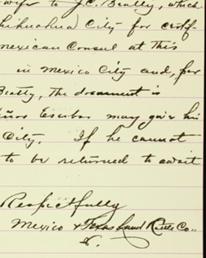 wife to J.C. Beatty, which
Chihuahua City for certf-
Mexican Consul at this
in Mexico City and, for
Beatty, the document is
Escobar may give his
City. If he cannot
to be returned to await
Respectfully
Mexico & Texas Land Cattle Co.